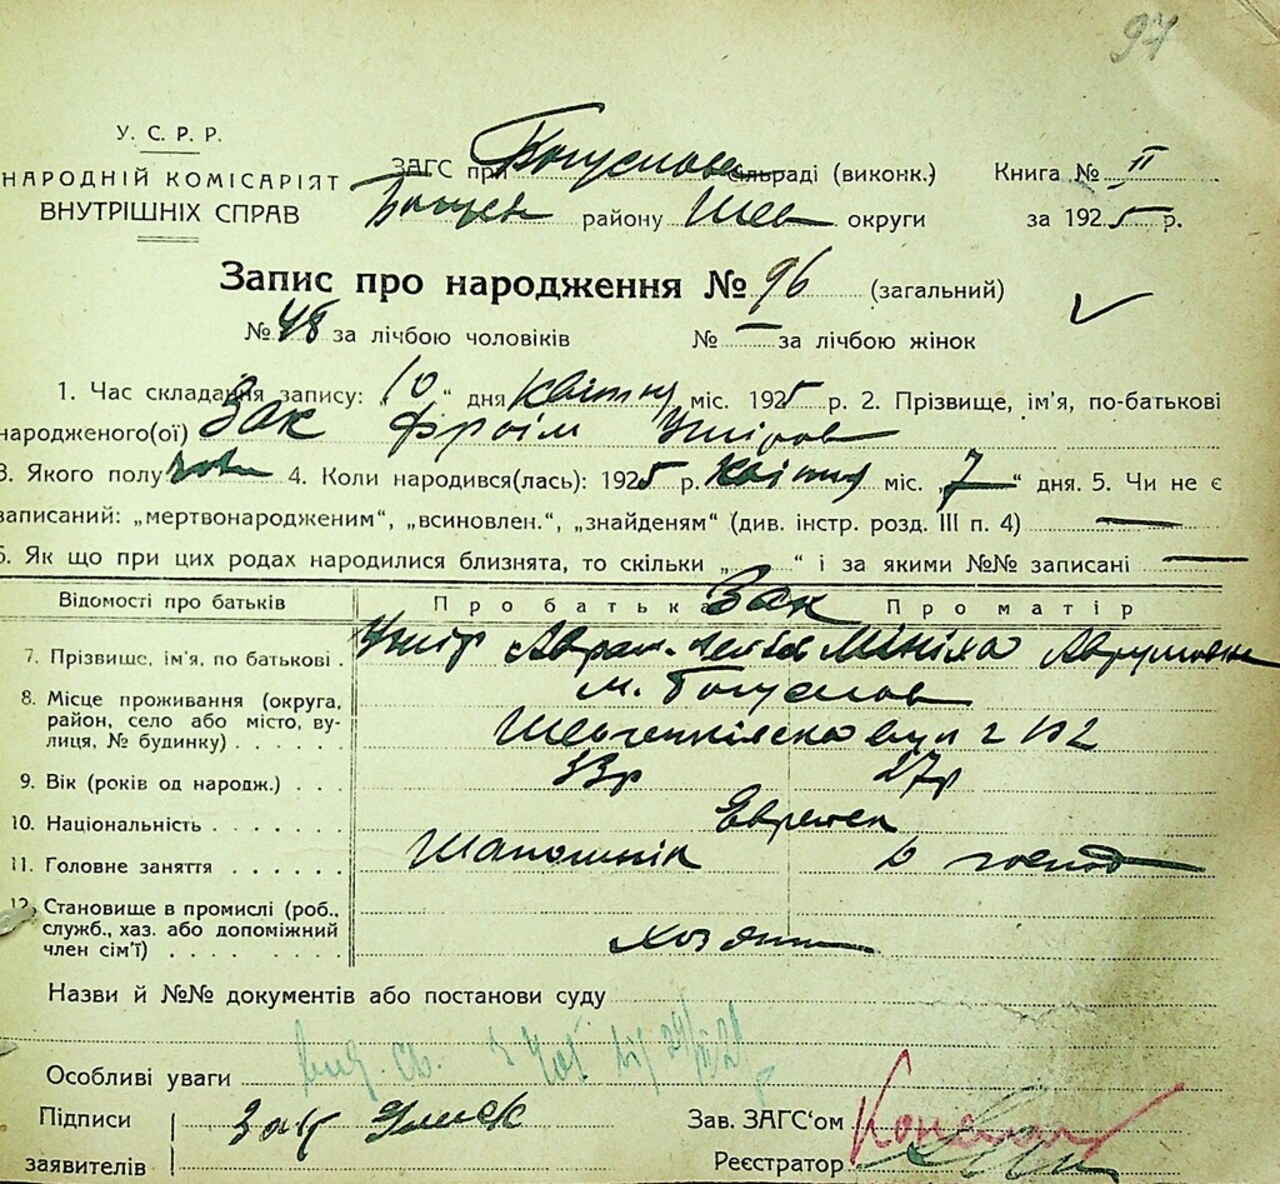 97
У. С. Р. Р.
НАРОДНІЙ КОМІСАРІЯТ
ВНУТРІШНІХ СПРАВ
ЗАГС при Богуслав сільраді (виконк.)
Книга № II
району Шев округи
за 1925 р.
Запис про народження № 96 (загальний)
№ 48 за лічбою чоловіків
№ — за лічбою жінок
1. Час складання запису: „10“ дня Квітня міс. 1925 р. 2. Прізвище, ім'я, по-батькові
народженого(ої) Зак Фроім
3. Якого полу чол 4. Коли народився(лась): 1925 р. Квітня міс. „7“ дня. 5. Чи не є
записаний: „мертвонародженим“, „всиновлен.“, „знайденям“ (див. інстр. розд. III п. 4) —
6. Як що при цих родах народилися близнята, то скільки „ “ і за якими №№ записані —
Відомості про батьків
Про батька Зак Про матір
7. Прізвище, ім'я, по батькові .
Мініха Аврумовна
8. Місце проживання (округа,
район, село або місто, ву-
лиця, № будинку) . . . . . .
м. Богуслав
Шевченківська вул
9. Вік (років од народж.) . . .
33р 27р
10. Національність . . . . . . .
Евреиск
11. Головне заняття . . . . . .
Шапошнік
12. Становище в промислі (роб.,
служб., хаз. або допоміжний
член сім'ї) . . . . . . . .
хозяин
Назви й №№ документів або постанови суду
вид. св.
Особливі уваги
Підписи
заявителів
Зак
Зав. ЗАГС'ом
Реєстратор